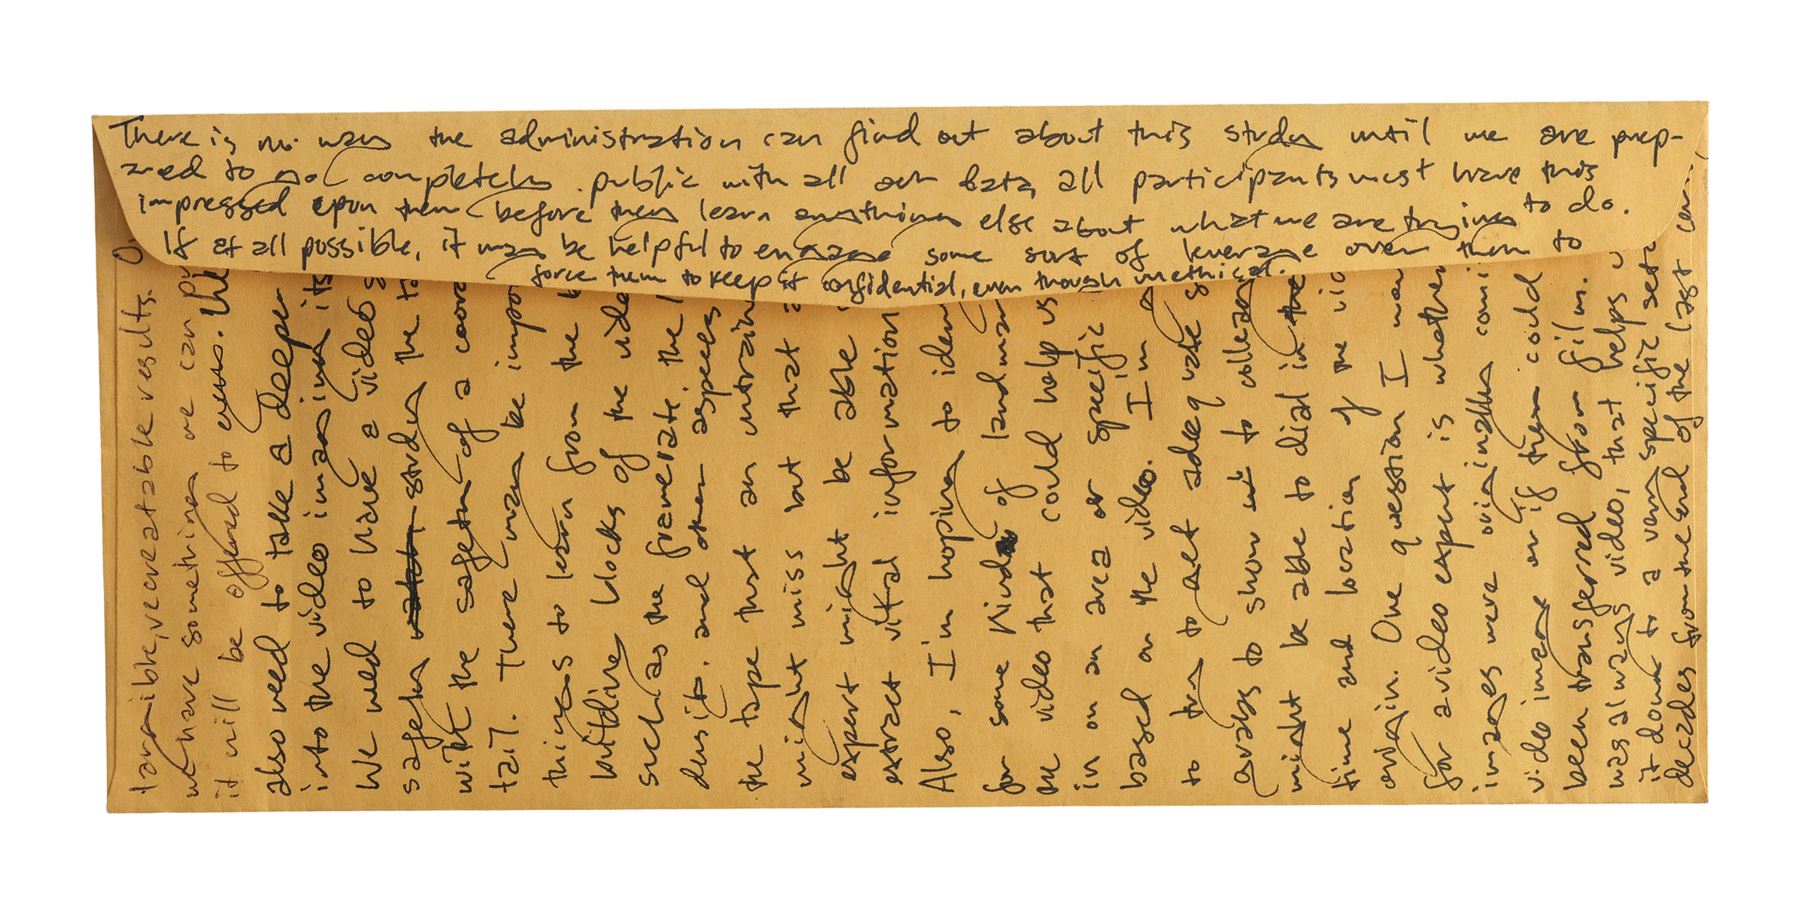 There is no way the administration can find out about this study until we are prep-
ared to go completely public with all our data, all participants must have this
impressed upon them before they learn anything else about what we are trying to do.
If at all possible, it may be helpful to engage some sort of leverage over them to
force them to keep it confidential, even though unethical.
tangible, recreatable results.
we have something we can
it will be offered to
also need to take a deeper
into the video imaging its
We need to have a video
safety study the
with the safety of a
tail. There may be
things to learn from the
building blocks of the
such as the framerate, the
density, and other aspects
the tape that an untrain
might miss but that
expert might be able
extract vital information
Also, I'm hoping to iden
for some kinds of landmar
the video that could help us
in on an area or specific
based on the video. I'm
to try to get adequate
grabs to show to colleag
might be able to dial in the
time and location of the
origin. One question I
for a video expert is whether
images were originally
video image or if they could
been transferred from film.
was always video, that helps
it down to a very specific set
decades from the end of the last cen